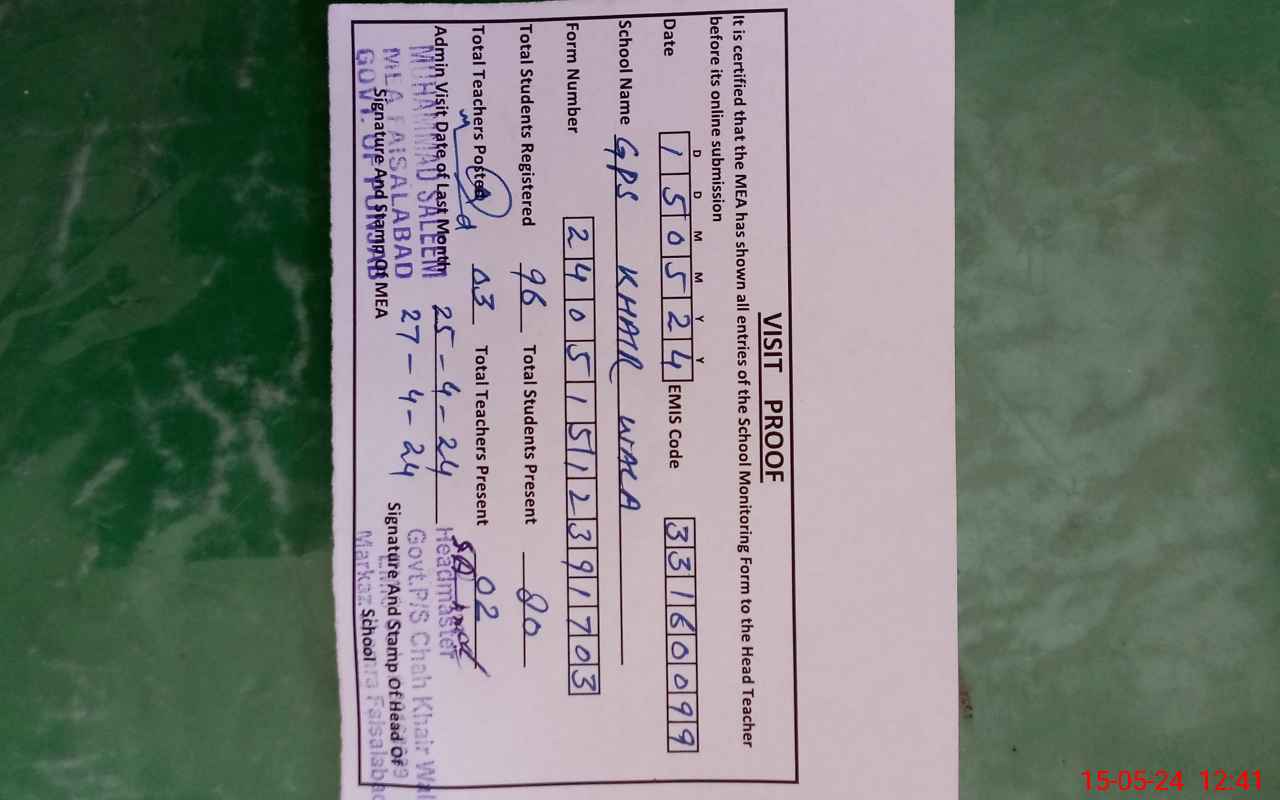 VISIT PROOF
It is certified that the MEA has shown all entries of the School Monitoring Form to the Head Teacher
before its online submission
D D M M Y Y
Date 150524 EMIS Code 33160099
School Name GPS KHAIR WALA
Form Number 24051512391703
Total Students Registered 96 Total Students Present 80
Total Teachers Posted 03 Total Teachers Present 02
Admin Visit Date of Last Month 25-4-24
27-4-24
MUHAMMAD SALEEM
MEA FAISALABAD
GOVT. OF PUNJAB
Signature And Stamp Of MEA
Headmaster
Govt.P/S Chah Khair Wal
Signature And Stamp Of Head Of
School
Markaz Faisalabad
15-05-24 12:41